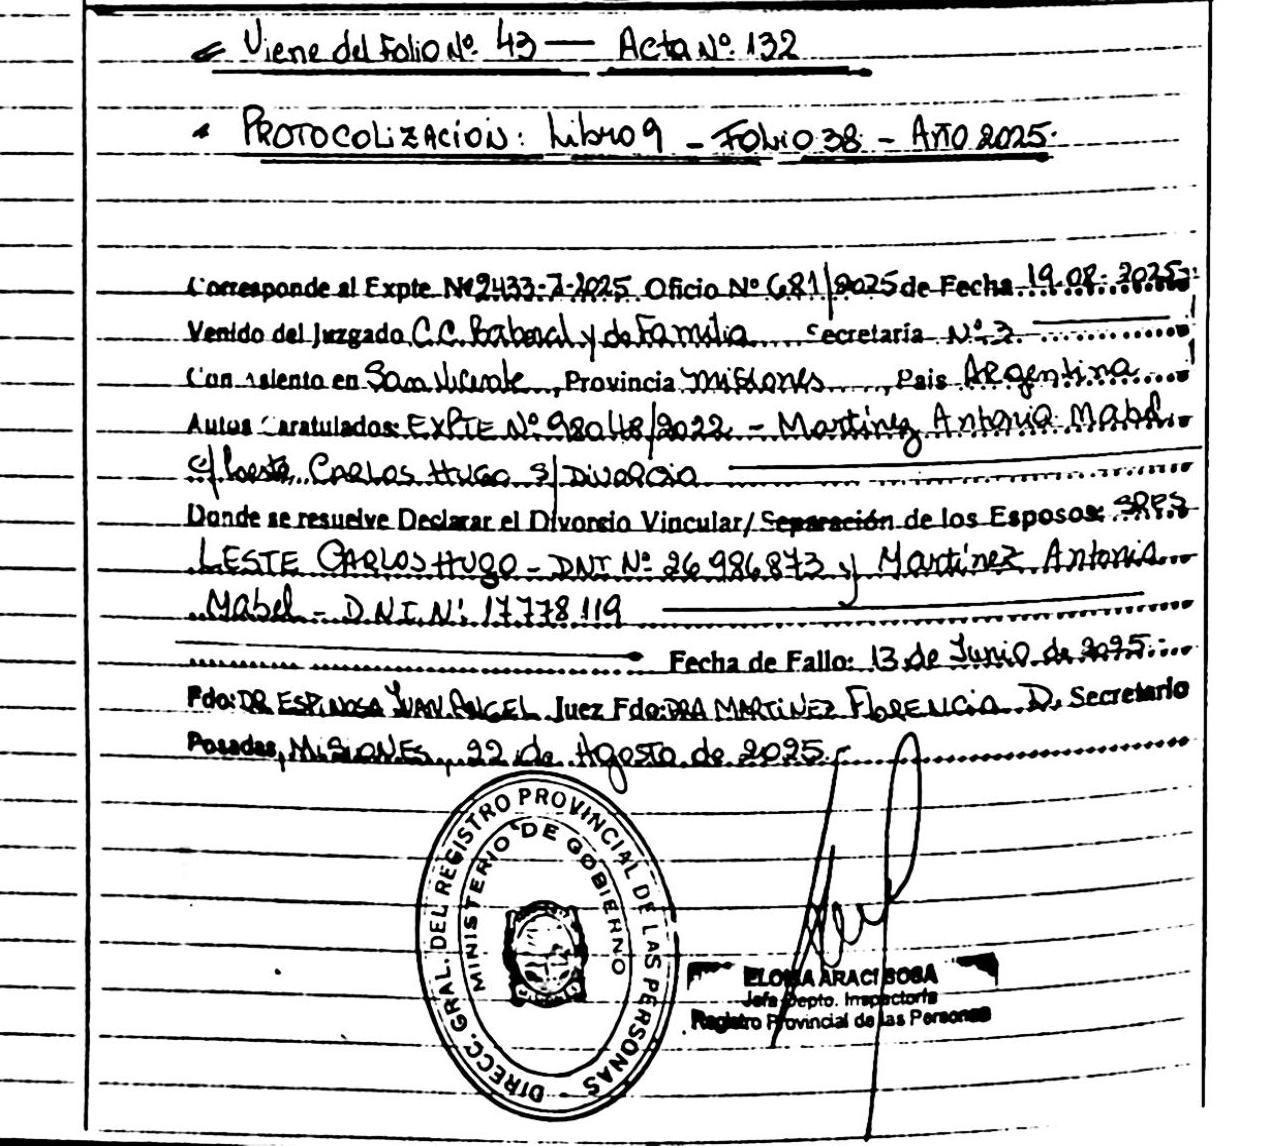 Viene del Folio Nº 43 — Acta Nº 132
PROTOCOLIZACION: Libro 9 - FOLIO 38 - AÑO 2025.
Corresponde al Expte Nº 2433-7-2025 Oficio Nº 681/2025 de Fecha 19.08.2025
Venido del Juzgado C.C. y de Familia Secretaría Nº 3
Con asiento en San Vicente, Provincia Misiones, Pais Argentina
Autos Caratulados: EXPTE Nº 98048/2022 - Martinez Antonia Mabel
c/ CARLOS HUGO S/ DIVORCIO
Donde se resuelve Declarar el Divorcio Vincular/ Separación de los Esposos: SRES
LESTE CARLOS HUGO - DNI Nº 26 986873 y Martínez Antonia
Mabel - D.N.I. Nº 17778119
Fecha de Fallo: 13 de Junio de 2025.-
Fdo: DR. ESPINOSA JUAN ANGEL Juez Fdo: DRA MARTINEZ FLORENCIA D. Secretario
Posadas, MISIONES, 22 de Agosto de 2025.-
DIRECC. GRAL. DEL REGISTRO PROVINCIAL DE LAS PERSONAS -
MINISTERIO DE GOBIERNO
ARACI SOSA
Jefa Depto. Inspectoría
Registro Provincial de las Personas